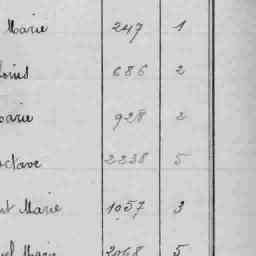 Marie 247 1
Louis 686 2
Marie 928 2
Octave 2238 5
Marie 1057 3
Marie 2068 5